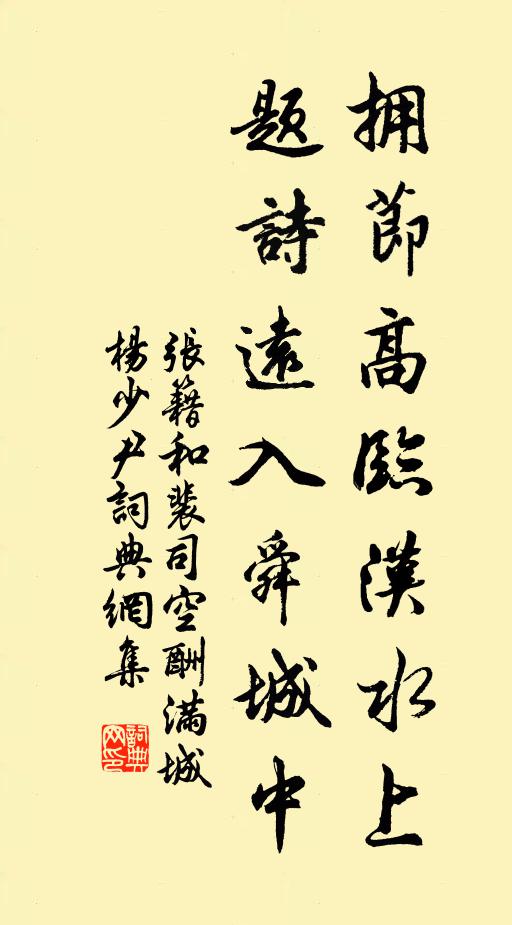 拥節高臨漢水上
題詩遠入舜城中
張籍和裴司空酬满城
楊少尹詞典網集
詞典網印